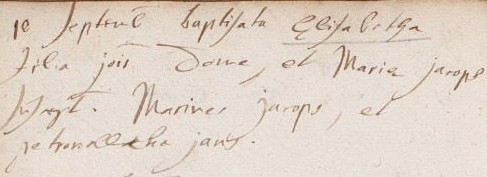 1e septemb baptisata Elisabetha
filia jois Dome, et Maria jacops
suscept. Marines jacops, et
petronella jans.